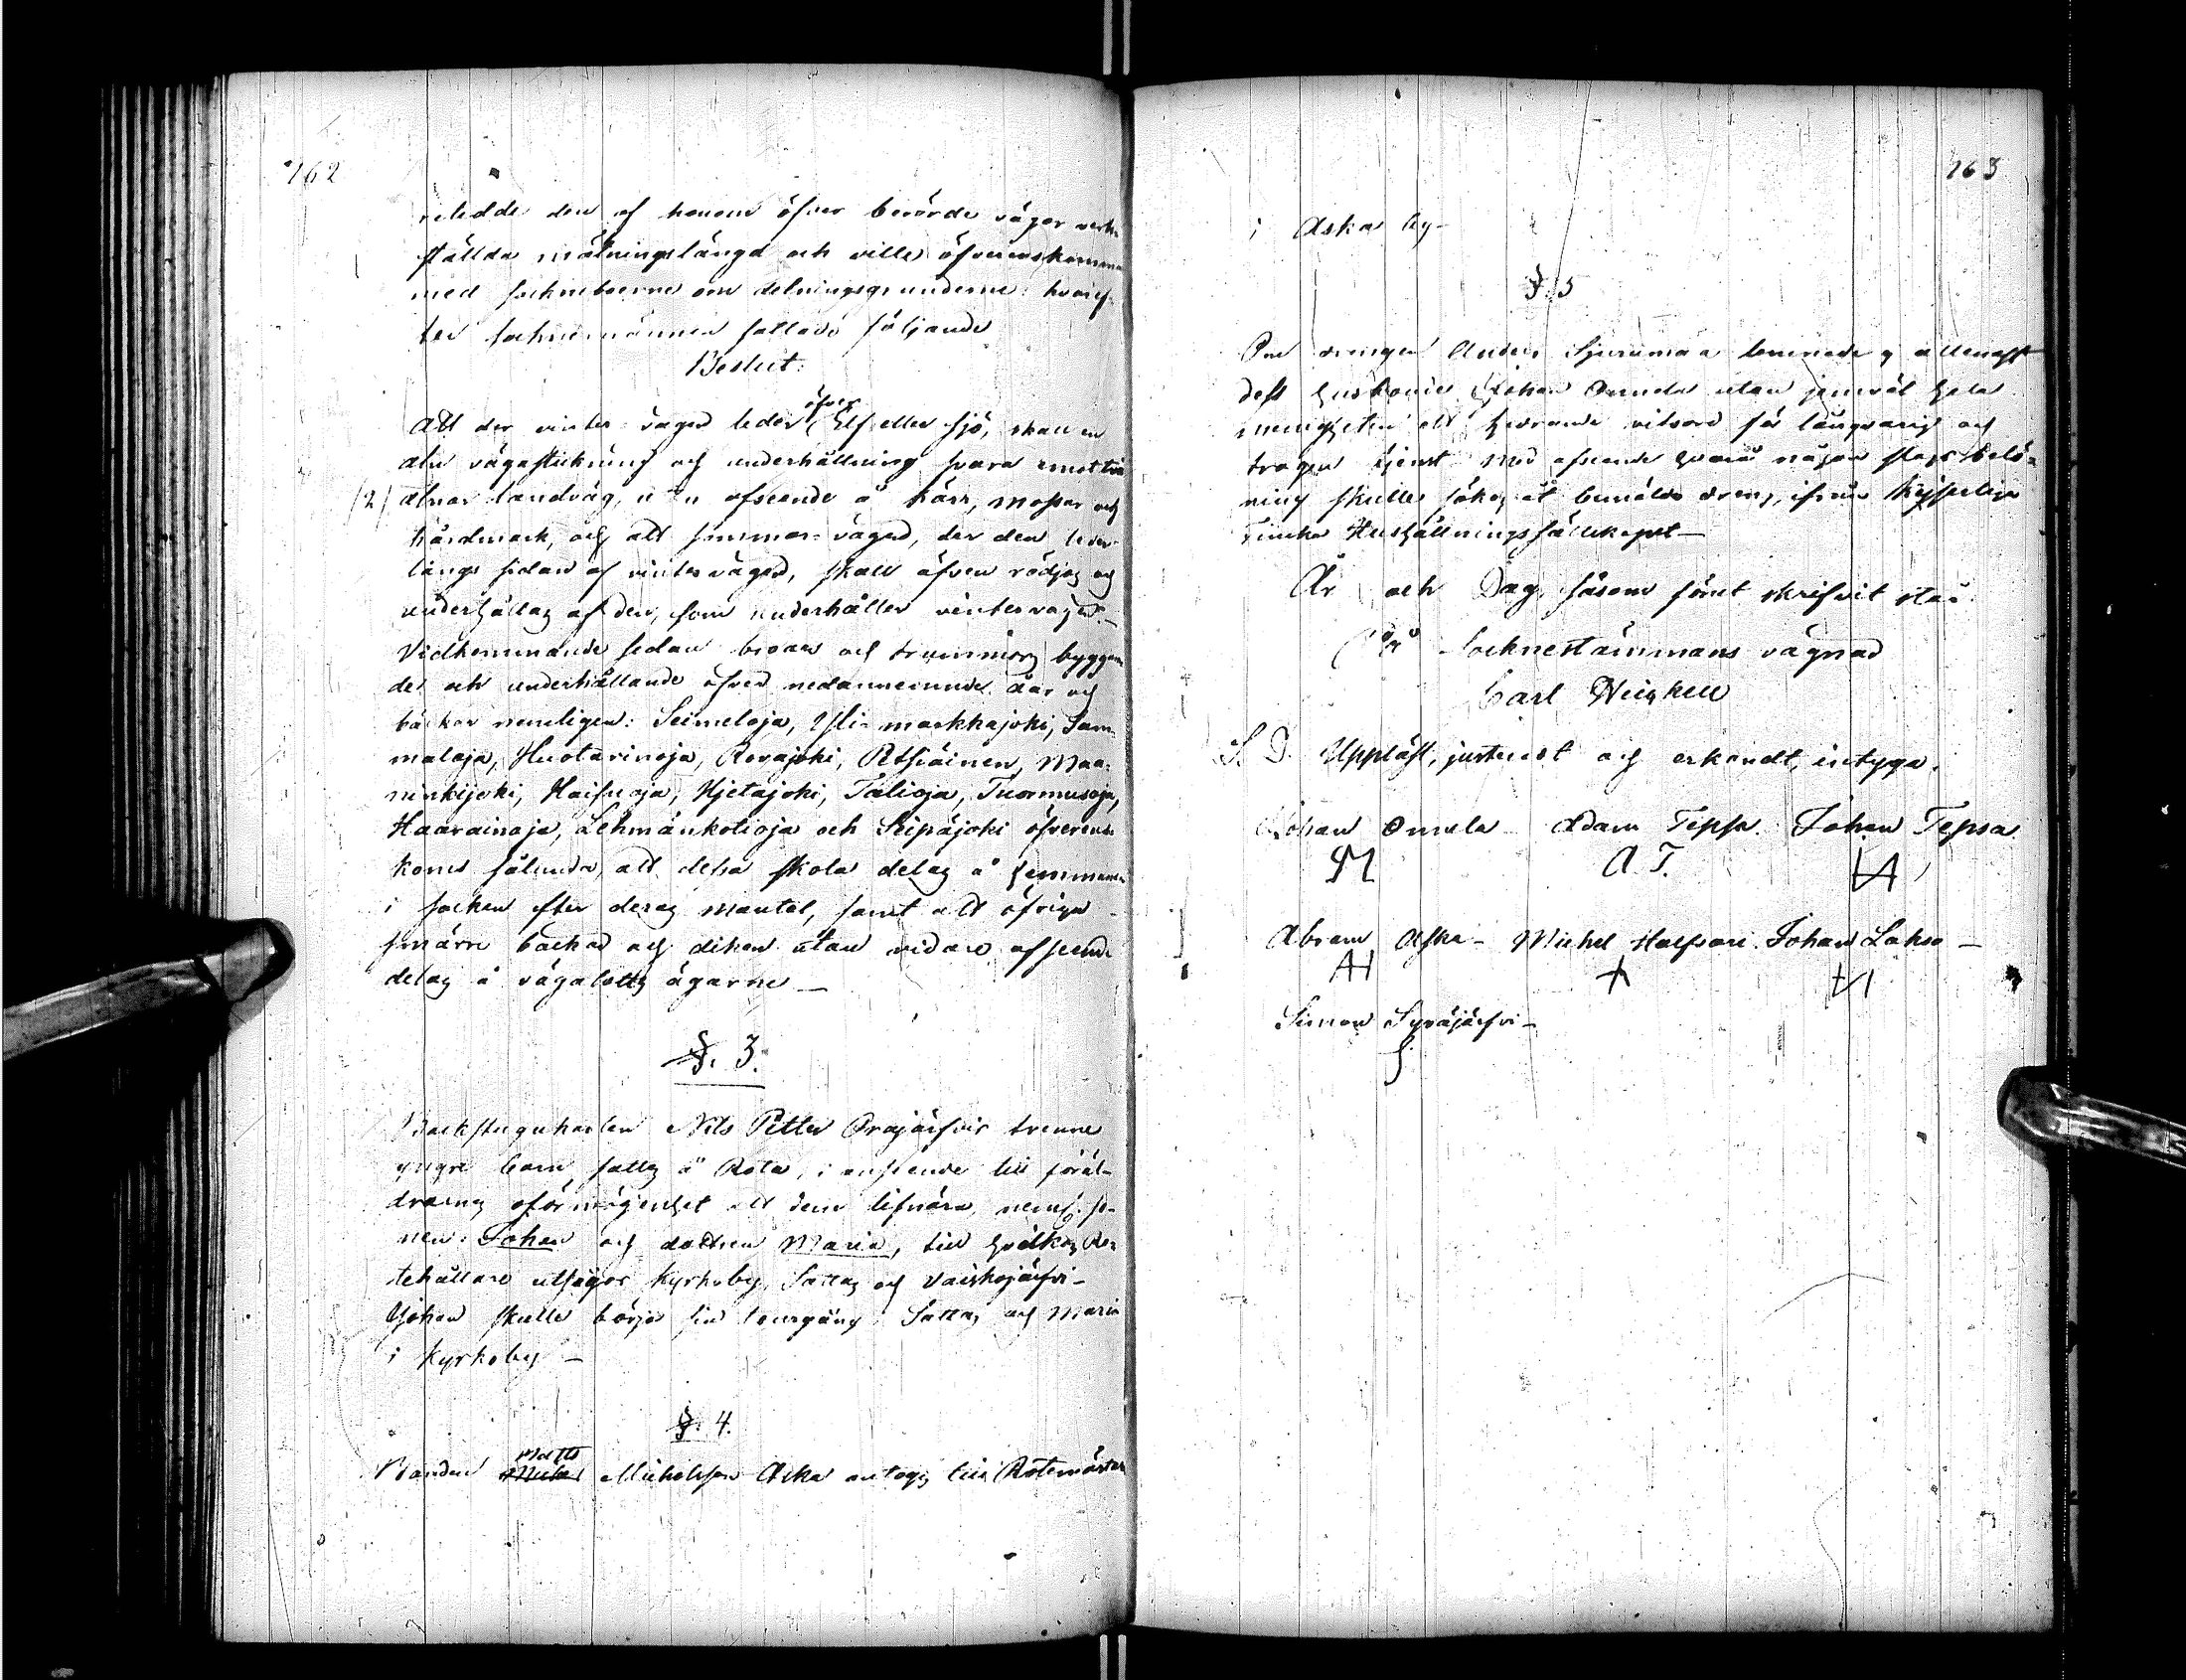 162
den af honom öfver berörde vägar verk-
ställda mätningslängd och ville öfverenskomma
med sockneboerne om delningsgrunderne: hvaref-
ter socknemännen fattade följande
Beslut:
Att der vinter vägen leder öfver Elf eller sjö, skall en
aln vägastickning och underhållning svara emot två
(2) alnar landväg, utan afseende å kärr, mossar och
hårdmark, och att sommar-vägen, der den leder
längs sidan af vintervägen, skall äfven rödjas och
underhållas af den, som underhåller vintervägen.-
Vidkommande sedan broars och trummors byggan-
de och underhållande öfver nedannemnde åar och
bäckar nemligen: Seimeloja, Yli-markkajoki, Sam-
maloja, Huotarinoja, Rovajoki, Petsiäinen, Maa-
ninkijoki, Haisuoja, Hjetajoki, Talioja, Tuormusoja,
Haarainoja, Lehmänkotioja och Seipäjoki öfverens-
koms sålunda, att dessa skola delas å hemmanen
i socken efter deras mantal, samt att öfriga
smärre bäckar och diken utan vidare afseende
delas å vägalotts ägarne -
§. 3.
Backstugukarlen Nils Petter Orajärfvis trenne
yngre barn sattes å Rota, i anseende till föräl-
drarnas oförmögenhet att dem lifnära, neml. so-
nen Johan och dottren Maria, till hvilkas Ro-
tehållare utsågos Kyrkoby, Sattas och Vaiskojärfvi -
Johan skulle börja sin tourgång i Sattas och Maria
i Kyrkoby -
§. 4.
Bonden Matts Michelsson Aska antogs till Rotemästare
163
i Aska by -
§. 5
Om drengen Anders lemnade allenast
dess husbonde Johan Onnela utan jemväl hela
menigheten ett hedrande vitsord för långvarig och
trogen tjenst med afseende hvarå någon slags belö-
ning skulle sökas åt bemälde dreng, ifrån Kejserliga
Finska Hushållningssällskapet -
År och Dag såsom förut skrifvit står.
På Socknestämmans vägnar
Carl Heickell
S. D. Uppläst, justerat och erkändt, intyga.
Johan Onnela - Adam Tepsa. Johan Tepsa
A. T.
Abram Aska - Michel Johan Lakso -
Simon Syväjärfvi -